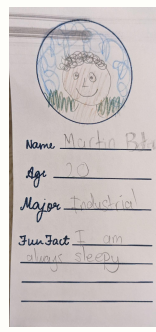 Name Martin
Age 20
Major Industrial
Fun Fact I am
always sleepy